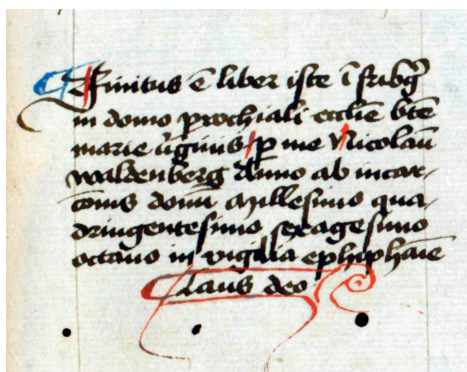 Finitus ē liber iste ī fribg̃
in domo prochiali ecclīe btē
marie ỽgīnis p me Nicolaū
waldenberg Anno ab incar-
cōnis domī Millesimo qua-
dringentesimo sexagesimo
octavo in vigilia ephiphāīe
Laus deo